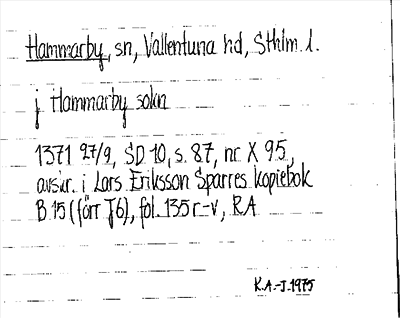 Hammarby, sn, Vallentuna hd, Sthlm. l.
j Hammarby sokn
1371 27/9, SD 10, s. 87, nr X 95,
avskr. i Lars Eriksson Sparres kopiebok
B 15 (förr J6), fol. 135 r-v, RA
K.A-J. 1975